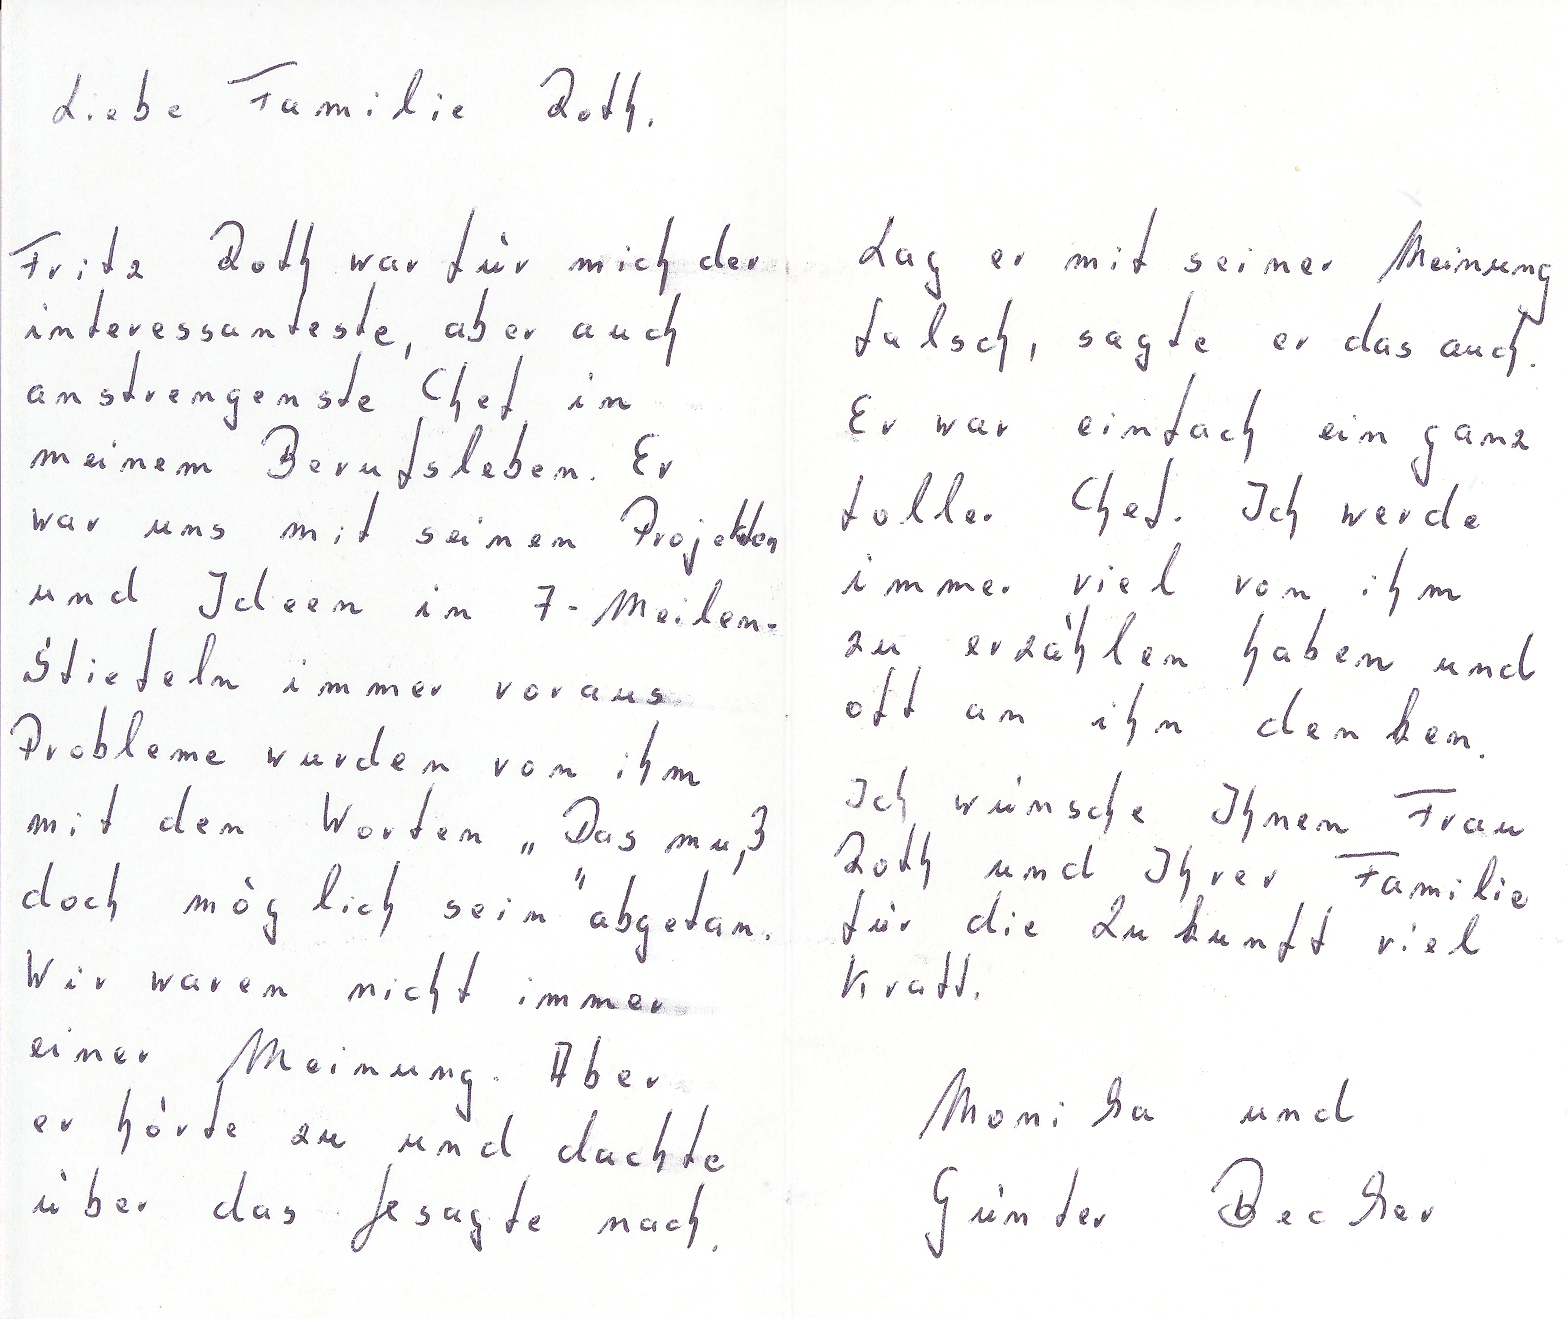 Liebe Familie Roth.
Fritz Roth war für mich der
interessanteste, aber auch
anstrengenste Chef in
meinem Berufsleben. Er
war uns mit seinen Projekten
und Ideen in 7-Meilen-
Stiefeln immer voraus
Probleme wurden von ihm
mit den Worten „Das muß
doch möglich sein" abgetan.
Wir waren nicht immer
einer Meinung. Aber
er hörte zu und dachte
über das Gesagte nach.
Lag er mit seiner Meinung
falsch, sagte er das auch.
Er war einfach ein ganz
toller Chef. Ich werde
immer viel von ihm
zu erzählen haben und
oft an ihn denken.
Ich wünsche Ihnen Frau
Roth und Ihrer Familie
für die Zukunft viel
Kraft.
Monika und
Günter Becker